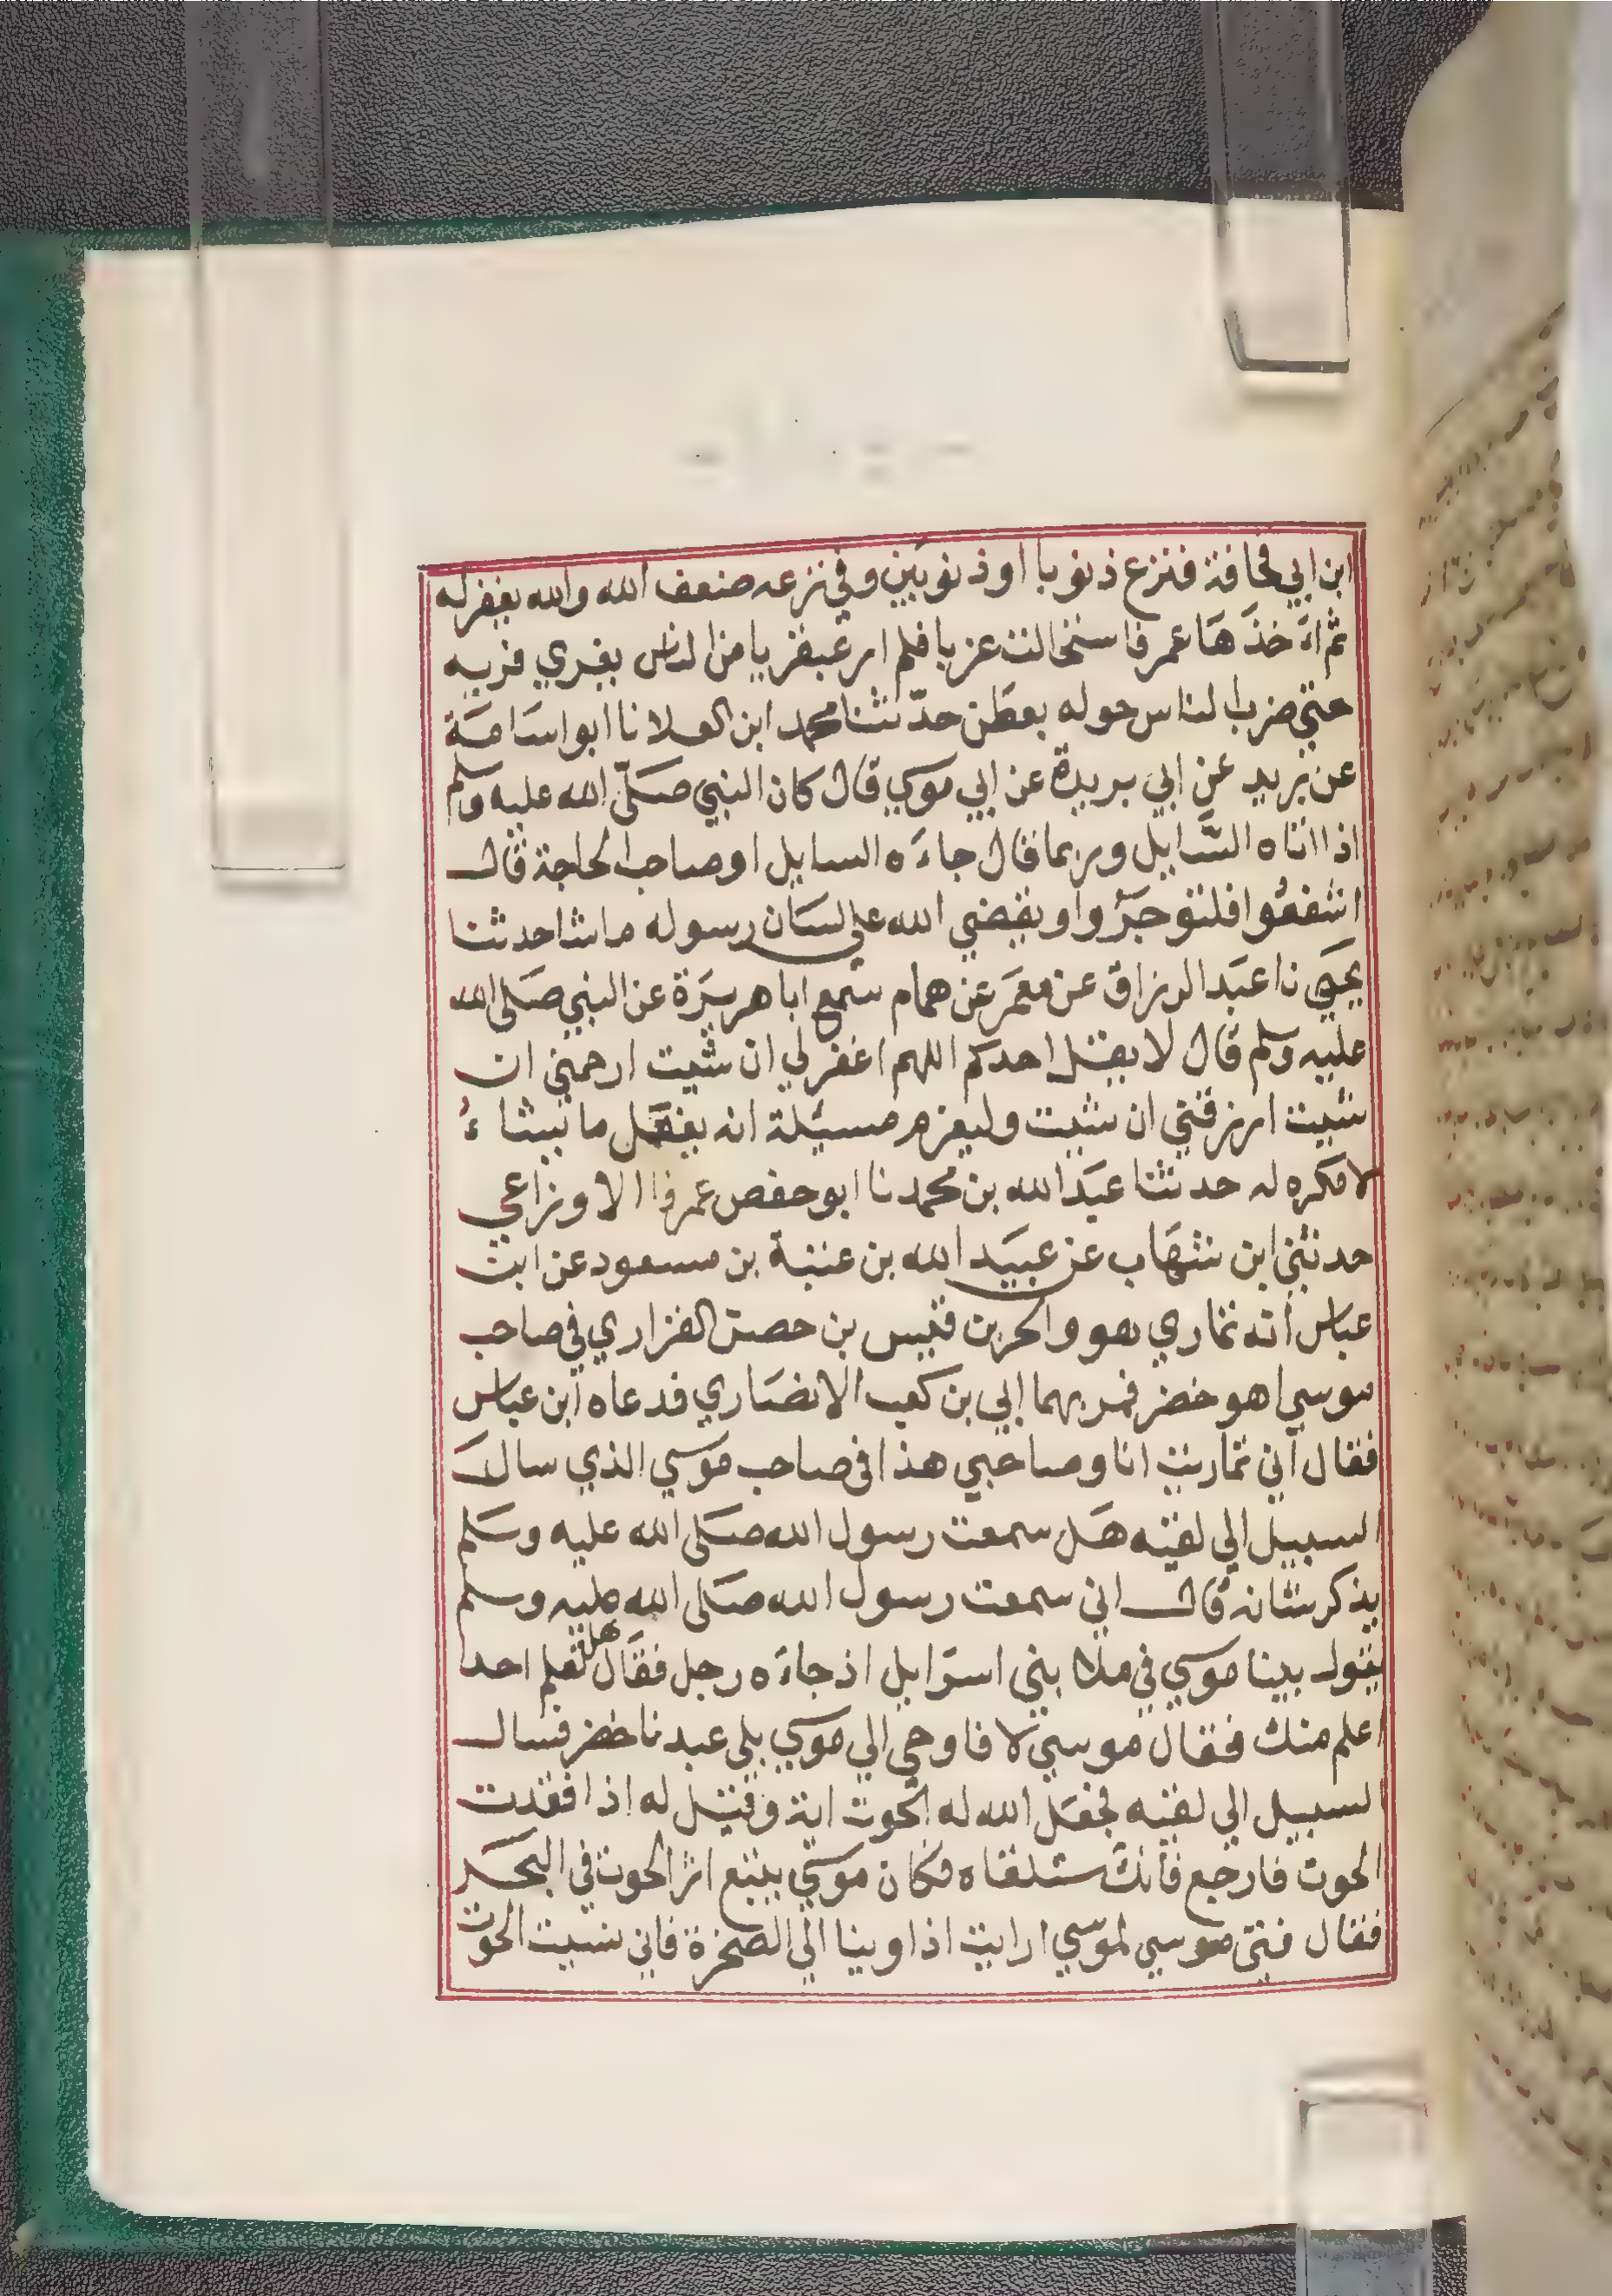 ابن ابي قحافة فنزع ذنوبا او ذنوبين وفي نزعه ضعف الله والله يغفر له
ثم اءخذها عمر فاستحالت غربا فلم ار عبقريا من الناس يفري فريه
حتي ضرب الناس حوله بعطن حدثنا محمد ابن العلا نا ابو اسامة
عن بريد عن ابي بريدة عن ابي موسي قال كان النبي صلى الله عليه وسلم
اذا اتاه السايل وربما قال جاءه السايل او صاحب الحاجة قال
اشفعوا فلتوجروا ويقضي الله على لسان رسوله ما شا حدثنا
يحيي نا عبد الرزاق عن معمر عن همام سمع ابا هريرة عن النبي صلى الله
عليه وسلم قال لا يقل احدكم اللهم اغفر لي ان شيت ارحمني ان
شيت ارزقني ان شيت وليعزم مسيلة انه يفعل ما يشاء
لا مكره له حدثنا عبد الله بن محمد نا ابو حفص عمر نا الاوزاعي
حدثني ابن شهاب عن عبيد الله بن عتبة بن مسعود عن ابن
عباس انه تماري هو والحر بن قيس بن حصن الفزاري في صاحب
موسي اهو خضر فمر بهما ابي بن كعب الانصاري فدعاه ابن عباس
فقال اني تماريت انا وصاحبي هذا في صاحب موسي الذي سال
السبيل الي لقيه هل سمعت رسول الله صلى الله عليه وسلم
يذكر شانه قال اني سمعت رسول الله صلى الله عليه وسلم
يقول بينا موسي في ملا بني اسرايل اذ جاءه رجل فقال هل تعلم احد
اعلم منك فقال موسي لا فاوحي الي موسي بلي عبدنا خضر فسال
السبيل الي لقيه فجعل الله له الحوت اية وقيل له اذا فقدت
الحوت فارجع فانك ستلقاه فكان موسي يتبع اثر الحوت في البحر
فقال فتي موسي لموسي ارايت اذ اوينا الي الصخرة فاني نسيت الحوت